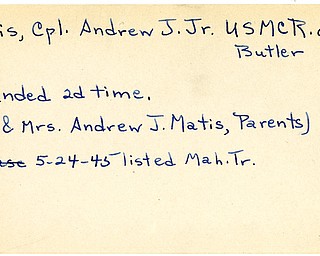 is, Cpl. Andrew J. Jr. USMCR.
Butler
nded 2d time.
& Mrs. Andrew J. Matis, Parents)
5-24-45 listed Mah. Tr.